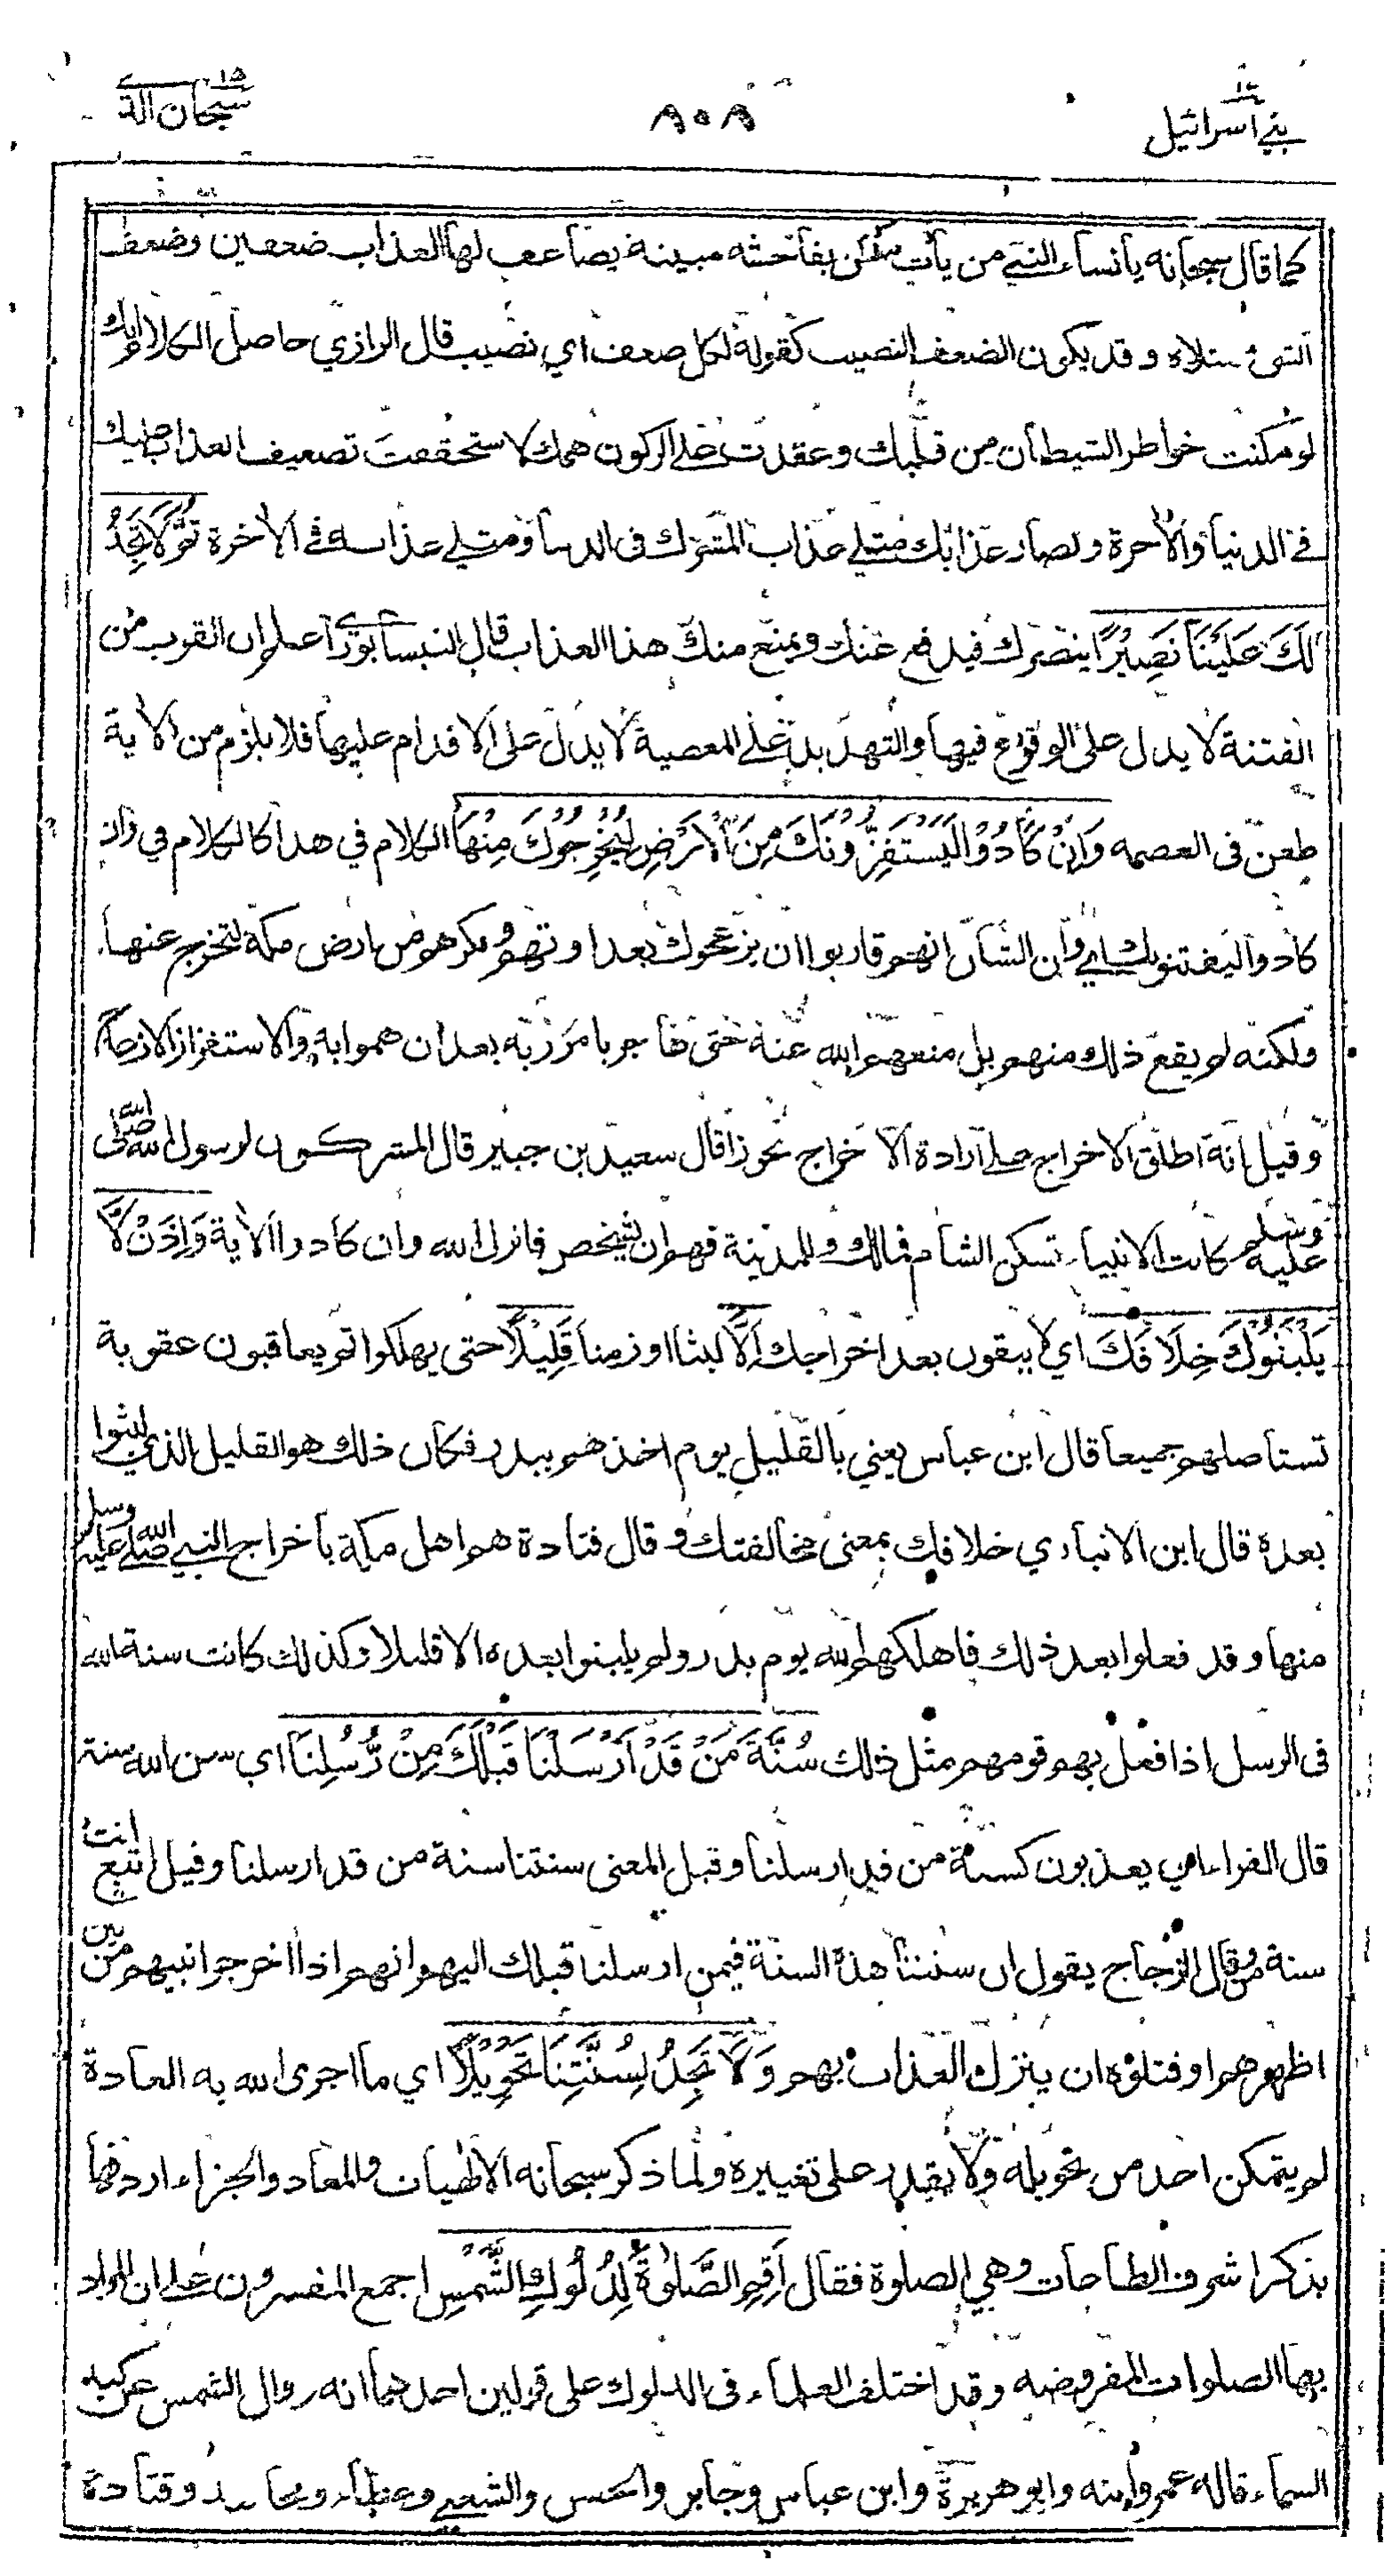 بني اسرائيل ١٧
٨٠٨
سبحان الذي ١٥
كما قال سبحانه يا نساء النبي من يأت منكن بفاحشة مبينة يضاعف لها العذاب ضعفين وضعف
الشئ مثلاه وقد يكون الضعف النصيب كقوله لكل ضعف اي نصيب قال الرازي حاصل الكلام انك
لو مكنت خواطر الشيطان من قلبك وعقدت على الركون همك لاستحققت تضعيف العذاب عليك
في الدنيا والآخرة ولصار عذابك مثلي عذاب المشرك في الدنيا ومثلي عذابه في الآخرة ثُمَّ لَا تَجِدُ
لَكَ عَلَيْنَا نَصِيْرًا ينصرك فيدفع عنك ويمنع منك هذا العذاب قال النيسابوري اعلم ان القرب من
الفتنة لا يدل على الوقوع فيها والتهديد على المعصية لا يدل على الاقدام عليها فلا يلزم من الآية
طعن في العصمة وَاِنْ كَادُوْا لَيَسْتَفِزُّوْنَكَ مِنَ الْاَرْضِ لِيُخْرِجُوْكَ مِنْهَا الكلام في هذا كالكلام في وان
كادوا ليفتنونك اي وان الشأن انهم قاربوا ان يزعجوك بعداوتهم ومكرهم من ارض مكة لتخرج عنها
ولكنه لم يقع ذلك منهم بل منعهم الله عنه حتى هاجر بامر ربه بعد ان هموا به والاستفزاز الازعاج
وقيل انه اطلق الاخراج على ارادة الاخراج تجوزا قال سعيد بن جبير قال المشركون لرسول الله صلى الله
عليه وسلم كانت الانبياء تسكن الشام فمالك وللمدينة فهم ان يشخص فانزل الله وان كادوا الآية وَاِذَنْ لَّا
يَلْبَثُوْنَ خِلَافَكَ اي لا يبقون بعد اخراجك اِلَّا لبثا او زمنا قَلِيْلًا حتى يهلكوا ثم يعاقبون عقوبة
تستأصلهم جميعا قال ابن عباس يعني بالقليل يوم اخذهم ببدر فكان ذلك هو القليل الذي لبثوا
بعده قال ابن الانباري خلافك بمعنى مخالفتك وقال قتادة هم اهل مكة باخراج النبي صلى الله عليه وسلم
منها وقد فعلوا بعد ذلك فاهلكهم الله يوم بدر ولم يلبثوا بعده الا قليلا وكذلك كانت سنة الله
في الرسل اذا فعل بهم قومهم مثل ذلك سُنَّةَ مَنْ قَدْ اَرْسَلْنَا قَبْلَكَ مِنْ رُّسُلِنَا اي سن الله سنة
قال الفراء اي يعذبون كسنة من قد ارسلنا وقيل المعنى سنتنا سنة من قد ارسلنا وقيل اتبع انت
سنة من وقال الزجاج يقول ان سنتنا هذه السنة فيمن ارسلنا قبلك اليهم انهم اذا اخرجوا نبيهم من بين
اظهرهم او قتلوه ان ينزل العذاب بهم وَلَا تَجِدُ لِسُنَّتِنَا تَحْوِيْلًا اي ما اجرى الله به العادة
لم يتمكن احد من تحويله ولا يقدر على تغييره ولما ذكر سبحانه الالهيات والمعاد والجزاء اردفها
بذكر اشرف الطاعات وهي الصلوة فقال اَقِمِ الصَّلٰوةَ لِدُلُوْكِ الشَّمْسِ اجمع المفسرون على ان المراد
بها الصلوات المفروضة وقد اختلف العلماء في الدلوك على قولين احدهما انه زوال الشمس عن كبد
السماء قاله عمر وابنه وابو هريرة وابن عباس وجابر والحسن والشعبي وعطاء ومجاهد وقتادة